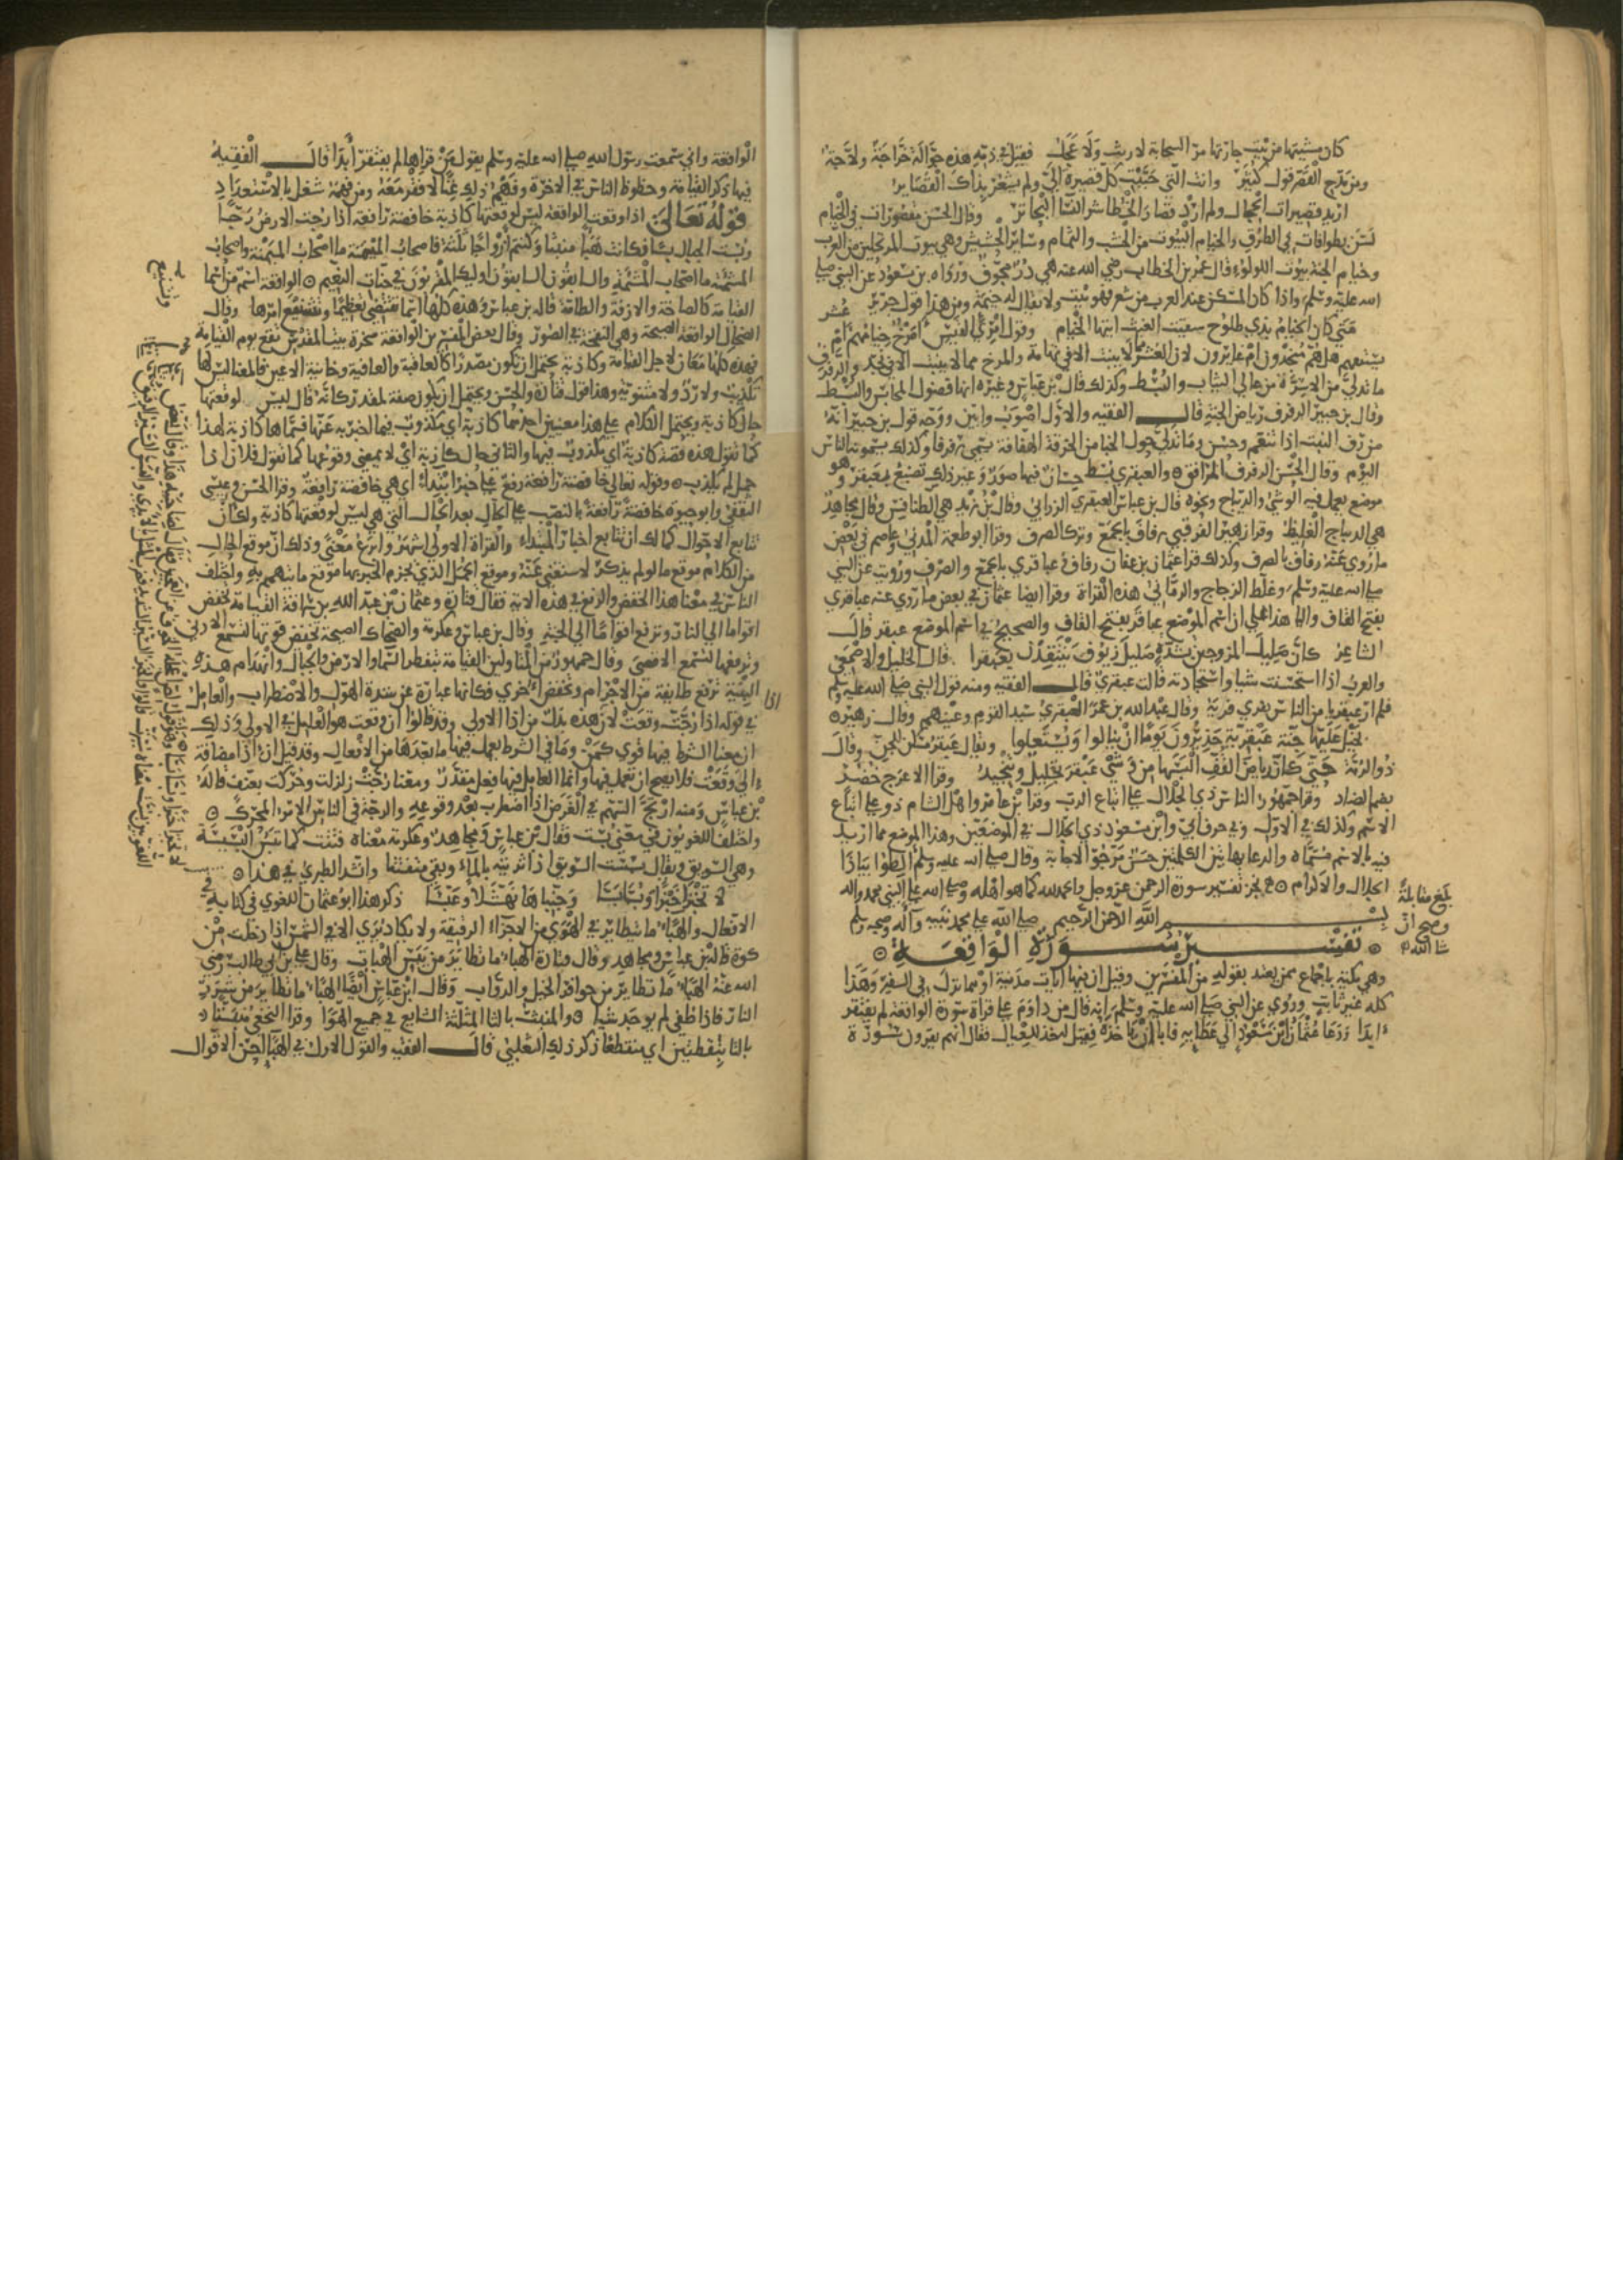 كان مشيتها من بيت جارتها مر السحابة لا ريث ولا عجل فقيل في ذمه هذه جوالة خراجة ولاجة
ومن مدح القصر قول كثير وانت التي حببت كل قصيرة الي ولم يشعر بذاك القصاير
اريد قصيرات الحجال ولم ارد قصار الخطا شر النسا البحاتر وقال الحسن مقصورات في الخيام
لسن بطوافات في الطرق والخيام البيوت من الخشب والثمام وساير الحشيش وهي بيوت المرتحلين من العرب
وخيام الجنة بيوت اللولو قال عمر بن الخطاب رضي الله عنه هي در مجوف ورواه بن مسعود عن النبي صلى
الله عليه وسلم واذا كان المسكن عند العرب من شعر فهو بيت ولا يقال له خيمة ومن هذا قول جرير
متي كان الخيام بذي طلوح سقيت الغيث ايتها الخيام وقول امرئ القيس امرخ خيامهم ام عشر
لان العشر لا ينبت الا في تهامة والمرخ مما لا ينبت الا في نجد والرفرف
ما تدلي من الاسرة من عالي الثياب والبسط وكذلك قال بن عباس وغيره انها فضول المحابس والبسط
وقال بن جبير الرفرف رياض الجنة قال الفقيه والاول اصوب وابين ووجه قول بن جبير انه
من رف النبت اذا تنعم وحسن وما تدلي حول الخبا من الخرقة الهفافة يسمى رفرفا وكذلك يسمونه الناس
اليوم وقال الحسن الرفرف المرافق والعبقري بسط حسان فيها صور وغير ذلك تصنع بعبقر وهو
موضع يعمل فيه الوشي والديباج ونحوه قال بن عباس العبقري الزرابي وقال بن زيد هي الطنافس وقال مجاهد
هي الديباج الغليظ وقرا زهير الفرقبي رفاف بالجمع وترك الصرف وقرا ابو طعمة المدني وعاصم في بعض
ما روي عنه رفاف بالصرف وكذلك قرا عثمان بن عفان رفاف وعباقري بالجمع والصرف ورويت عن النبي
صلى الله عليه وسلم وغلط الزجاج والرماني هذه القراة وقرا ايضا عثمان في بعض ما روي عنه عباقري
بفتح القاف واليا هذا علي ان اسم الموضع عباقر بفتح القاف والصحيح في اسم الموضع عبقر قال
الشاعر كان صليل المرو حين تشذه صليل زيوف ينتقدن بعبقرا قال الخليل والاصمعي
والعرب اذا استحسنت شيا واستجادته قالت عبقري قال الفقيه ومنه قول النبي صلى الله عليه وسلم
فلم ار عبقريا من الناس يفري فريه وقال عبد الله بن عمر العبقري سيد القوم وعينهم وقال زهير
بخيل عليها جنة عبقرية جديرون يوما ان ينالوا ويستعلوا ويقال عبقر مسكن للجن وقال
ذو الرمة حتى كان رياض القف البسها من وشي عبقر تجليل وتنجيد وقرا الاعرج خضر
بضم الضاد وقرا جمهور الناس ذي الجلال علي اتباع الرب وقرا بن عامر واهل الشام ذو علي اتباع
الاسم وكذلك في الاول وفي حرف ابي وابن مسعود ذي الجلال في الموضعين وهذا الموضع مما اريد
فيه بالاسم مسماه والدعا بهاتين الكلمتين حسن مرجو الاجابة وقال صلى الله عليه وسلم الظوا بياذا
الجلال والاكرام نجز تفسير سورة الرحمن عز وجل والحمد لله كما هو اهله وصلى الله على النبي محمد واله
بسم الله الرحمن الرحيم صلى الله على محمد نبيه وآله وصحبه وسلم
تفسير سورة الواقعة
وهي مكية باجماع ممن يعتد بقوله من المفسرين وقيل ان فيها ايات مدنية او مما نزل في السفر وهذا
كله غير ثابت وروي عن النبي صلى الله عليه وسلم انه قال من داوم على قراة سورة الواقعة لم يفتقر
ابدا ودعا عثمان ابن مسعود الي عطايه فابا ان ياخذه فقيل له خذ للعيال فقال انهم يقرون سورة
بلغ مقابلة
وصح ان
شا الله
الواقعة واني سمعت رسول الله صلى الله عليه وسلم يقول من قراها لم يفتقر ابدا قال الفقيه
فيها ذكر القيامة وحظوظ الناس في الاخرة وفهم ذلك غنا لا فقر معه ومن فهمه شغل بالاستعداد
قوله تعالى اذا وقعت الواقعة ليس لوقعتها كاذبة خافضة رافعة اذا رجت الارض رجا
وبست الجبال بسا فكانت هبا منبثا وكنتم ازواجا ثلثة فاصحاب الميمنة ما اصحاب الميمنة واصحاب
المشئمة ما اصحاب المشئمة والسابقون السابقون اوليك المقربون في جنات النعيم الواقعة اسم من اسما
القيامة كالصاخة والازفة والطامة قاله بن عباس وهذه كلها اسما تقتضي تعظيمها وتشنيع امرها وقال
الضحاك الواقعة الصيحة وهي النفخة في الصور وقال بعض المفسرين الواقعة صخرة بيت المقدس تقع يوم القيامة
فهذه كلها معان لاجل القيامة وكاذبة يحتمل ان يكون مصدرا كالعاقبة والعافية وخاينة الاعين فالمعنا ليس لها
تكذيب ولا رد ولا مثنوية وهذا قول قتادة والحسن ويحتمل ان يكون صفة لمقدر كانه قال ليس لوقعتها
حال كاذبة ويحتمل الكلام علي هذا معنيين احدهما كاذبة اي مكذوب فيما اخبر به عنها فسماها كاذبة لهذا
كما تقول هذه قصة كاذبة اي مكذوب فيها والثاني حال كاذبة اي لا يمضي وقوعها كما تقول فلان اذا
حمل لم يكذب وقوله تعالى خافضة رافعة رفع علي خبر ابتداء اي هي خافضة رافعة وقرا الحسن وعيسى
الثقفي وابو حيوة خافضة رافعة بالنصب علي الحال بعد الحال التي هي ليس لوقعتها كاذبة ولك ان
تتابع الاحوال كما لك ان تتابع اخبار المبتداء والقراة الاولى اشهر وابرع معني وذلك ان موقع الحال
من الكلام موقع ما لو لم يذكر لاستغني عنه وموقع الجمل الذي يجزم الخبر بها موقع ما يتهمم به واختلف
الناس في معنا هذا الخفض والرفع في هذه الاية فقال قتادة وعثمان بن عبد الله بن سراقة القيامة تخفض
اقواما الي النار وترفع اقواما الي الجنة وقال بن عباس وعكرمة والضحاك الصيحة تخفض قوتها لتسمع الادنى
وترفعها لتسمع الاقصى وقال جمهور من المتاولين القيامة بتفطر السماوالارض والجبال وانهدام هذه
البنية ترفع طايفة من الاجرام وتخفض اخري فكانها عبارة عن شدة الهول والاضطراب والعامل
في قوله اذا رجت وقعت لان هذه بدل من اذا الاولي وقد قالوا ان وقعت هو العامل في الاولى وذلك
ان معنا الشرط فيها قوي كمن وما في الشرط يعمل فيها ما بعدها من الافعال وقد قيل ان اذا مضافة
الي وقعت فلا يصح ان تعمل فيها وانما العامل فيها فعل مقدر ومعنا رجت زلزلت وحركت بعنف قاله
بن عباس ومنه ارتج السهم في الغرض اذا اضطرب بعد وقوعه والرجة في الناس الامر المحرك
واختلف اللغويون في معني بست فقال بن عباس ومجاهد وعكرمة معناه فتتت كما تبس البسيسة
وهي السويق ويقال بسست السويق اذا ثريته بالماء وبقي متفتتا وانشد الطبري في هذا
لا تخبزا خبزا وبسا بسا ذكر هذا ابو عثمان اللغوي في كتاب
الافعال والهباء ما يتطاير في الهوي من الاجزاء الرقيقة ولا يكاد يري الا في الشمس اذا دخلت من
كوة قاله بن عباس ومجاهد وقال قتادة الهباء ما تطاير من يبس النبات وقال علي بن ابي طالب رضي
الله عنه الهباء ما تطاير من حوافر الخيل والدواب وقال ابن عباس ايضا الهباء ما تطاير من شرر
النار فاذا طفي لم يوجد شيا والمنبث بالثا المثلثة الشايع في جميع الهوا وقرا النخعي منبتا
بالتا بنقطتين اي منقطعا ذكر ذلك الثعلبي قال الفقيه والقول الاول في الهبا احسن الاقوال
اذا